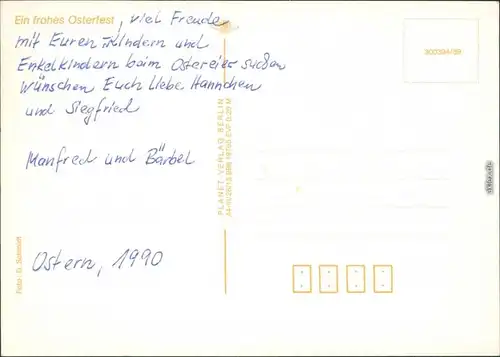 Ein frohes Osterfest, viel Freude
mit Euren Kindern und
Enkelkindern beim Ostereier suchen
Wünschen Euch liebe Hannchen
und Siegfried
Manfred und Bärbel
Ostern, 1990
Foto: D. Schmidt
PLANET-VERLAG BERLIN